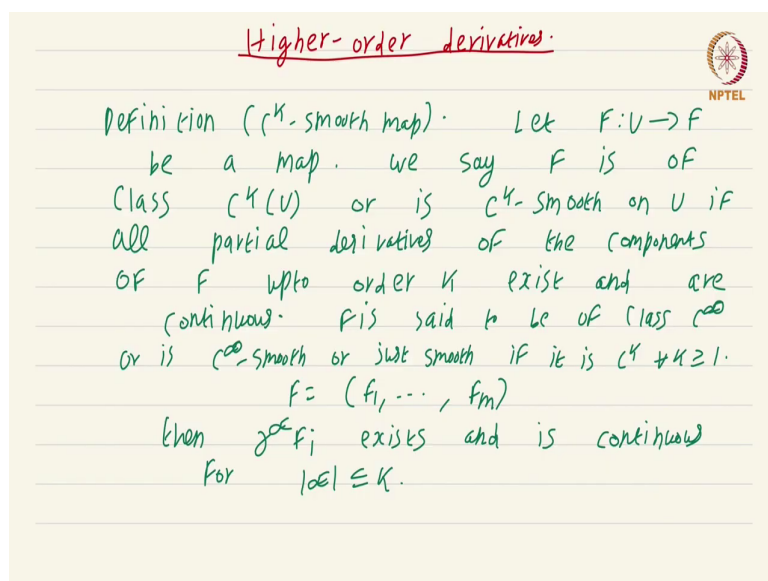 Higher-order derivatives.
NPTEL
Definition (C^k-smooth map). Let F:U→F
be a map. we say F is of
Class C^k(U) or is C^k-smooth on U if
all partial derivatives of the components
of F upto order k exist and are
continuous. F is said to be of class C^∞
or is C^∞-smooth or just smooth if it is C^k ∀k≥1.
F= (f₁, ..., fₘ)
then ∂^α Fⱼ exists and is continuous
for |α| ≤ k.